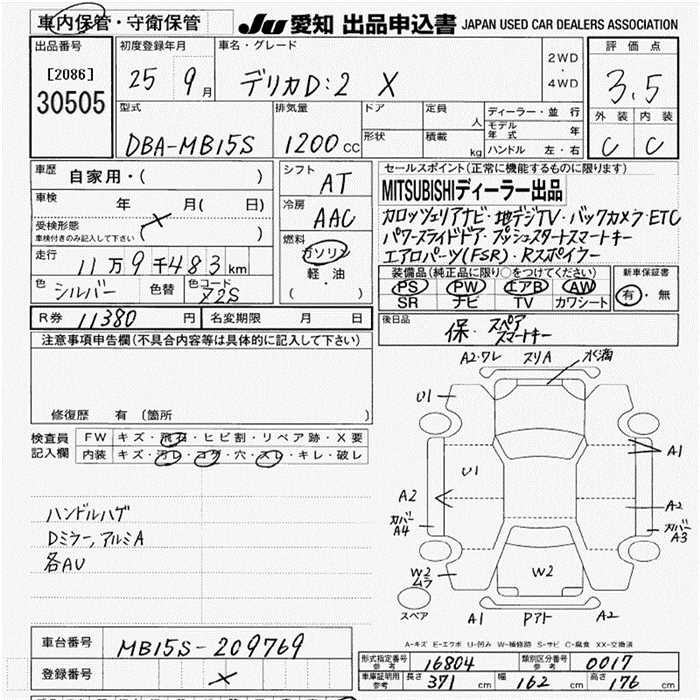 車内保管・守衛保管
JU 愛知 出品申込書 JAPAN USED CAR DEALERS ASSOCIATION
出品番号 初度登録年月 車名・グレード 2WD ・ 4WD 評価点
[2086] 30505 25 9月 デリカD:2 X 3.5
型式 排気量 ドア 定員 人 ディーラー・並行 外装 内装
DBA-MB15S 1200 CC 形状 積載 kg モデル年式 年 C C
ハンドル 左・右
車歴 自家用・( ) シフト AT セールスポイント(正常に機能するものに限ります)
MITSUBISHIディーラー出品
車検 年 月( 日) 冷房 AAC カロッツェリアナビ・地デジTV・バックカメラ・ETC
受検形態 車検付きのみ記入して下さい ( ) 燃料 ガソリン 軽・油 ( ) パワースライドドア・プッシュスタートスマートキー
エアロパーツ(FSR)・Rスポイラー
走行 11万9千483km
装備品(純正品に限り○をつけてください) 新車保証書
色 シルバー 色替 色コード Z2S PS PW エアB AW 有・無
SR ナビ TV カワシート
R券 11380 円 名変期限 月 日 後日品 保・スペアスマートキー
注意事項申告欄(不具合内容等は具体的に記入して下さい)
修復歴 有 (箇所 )
検査員記入欄 FW キズ・飛石・ヒビ割・リペア跡・X要
内装 キズ・汚レ・コゲ・穴・スレ・キレ・破レ
ハンドルハゲ
Dミラー,アルミA
各AU
A2・ワレ スリA
U1
A1
U1
A2 A2
カバーA4 カバーA3
W2ムラ W2
スペア A1 Pアト A2
A-キズ E-エクボ U-凹み W-補修跡 S-サビ C-腐食 XX-交換済
車台番号 MB15S-209769
登録番号
形式指定番号 参考 16804 類別区分番号 参考 0017
車庫証明用 参考 長さ 371 cm 幅 162 cm 高さ 176 cm